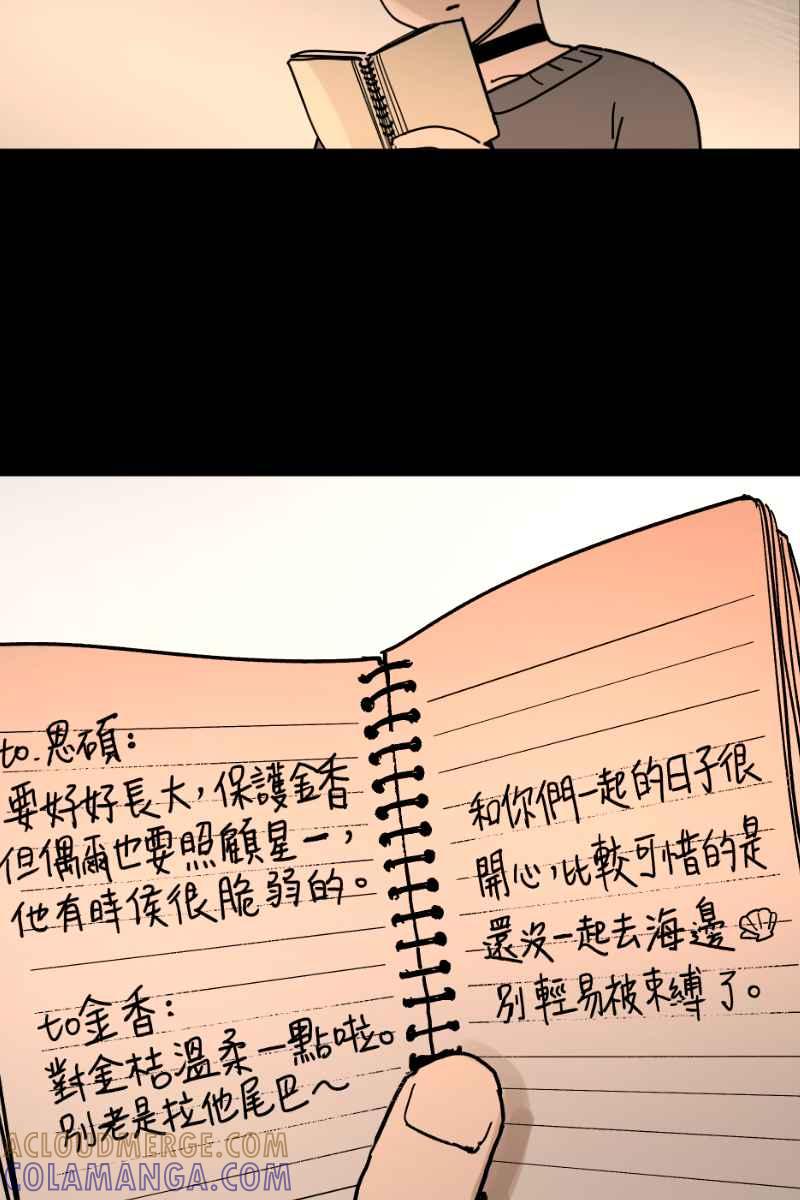 to.恩碩：
要好好長大，保護金香
但偶爾也要照顧星一，
他有時侯很脆弱的。
to金香：
對金桔溫柔一點啦。
別老是拉他尾巴～
和你們一起的日子很
開心，比較可惜的是
還沒一起去海邊
別輕易被束縛了。
ACLOUDMERGE.COM
COLAMANGA.COM